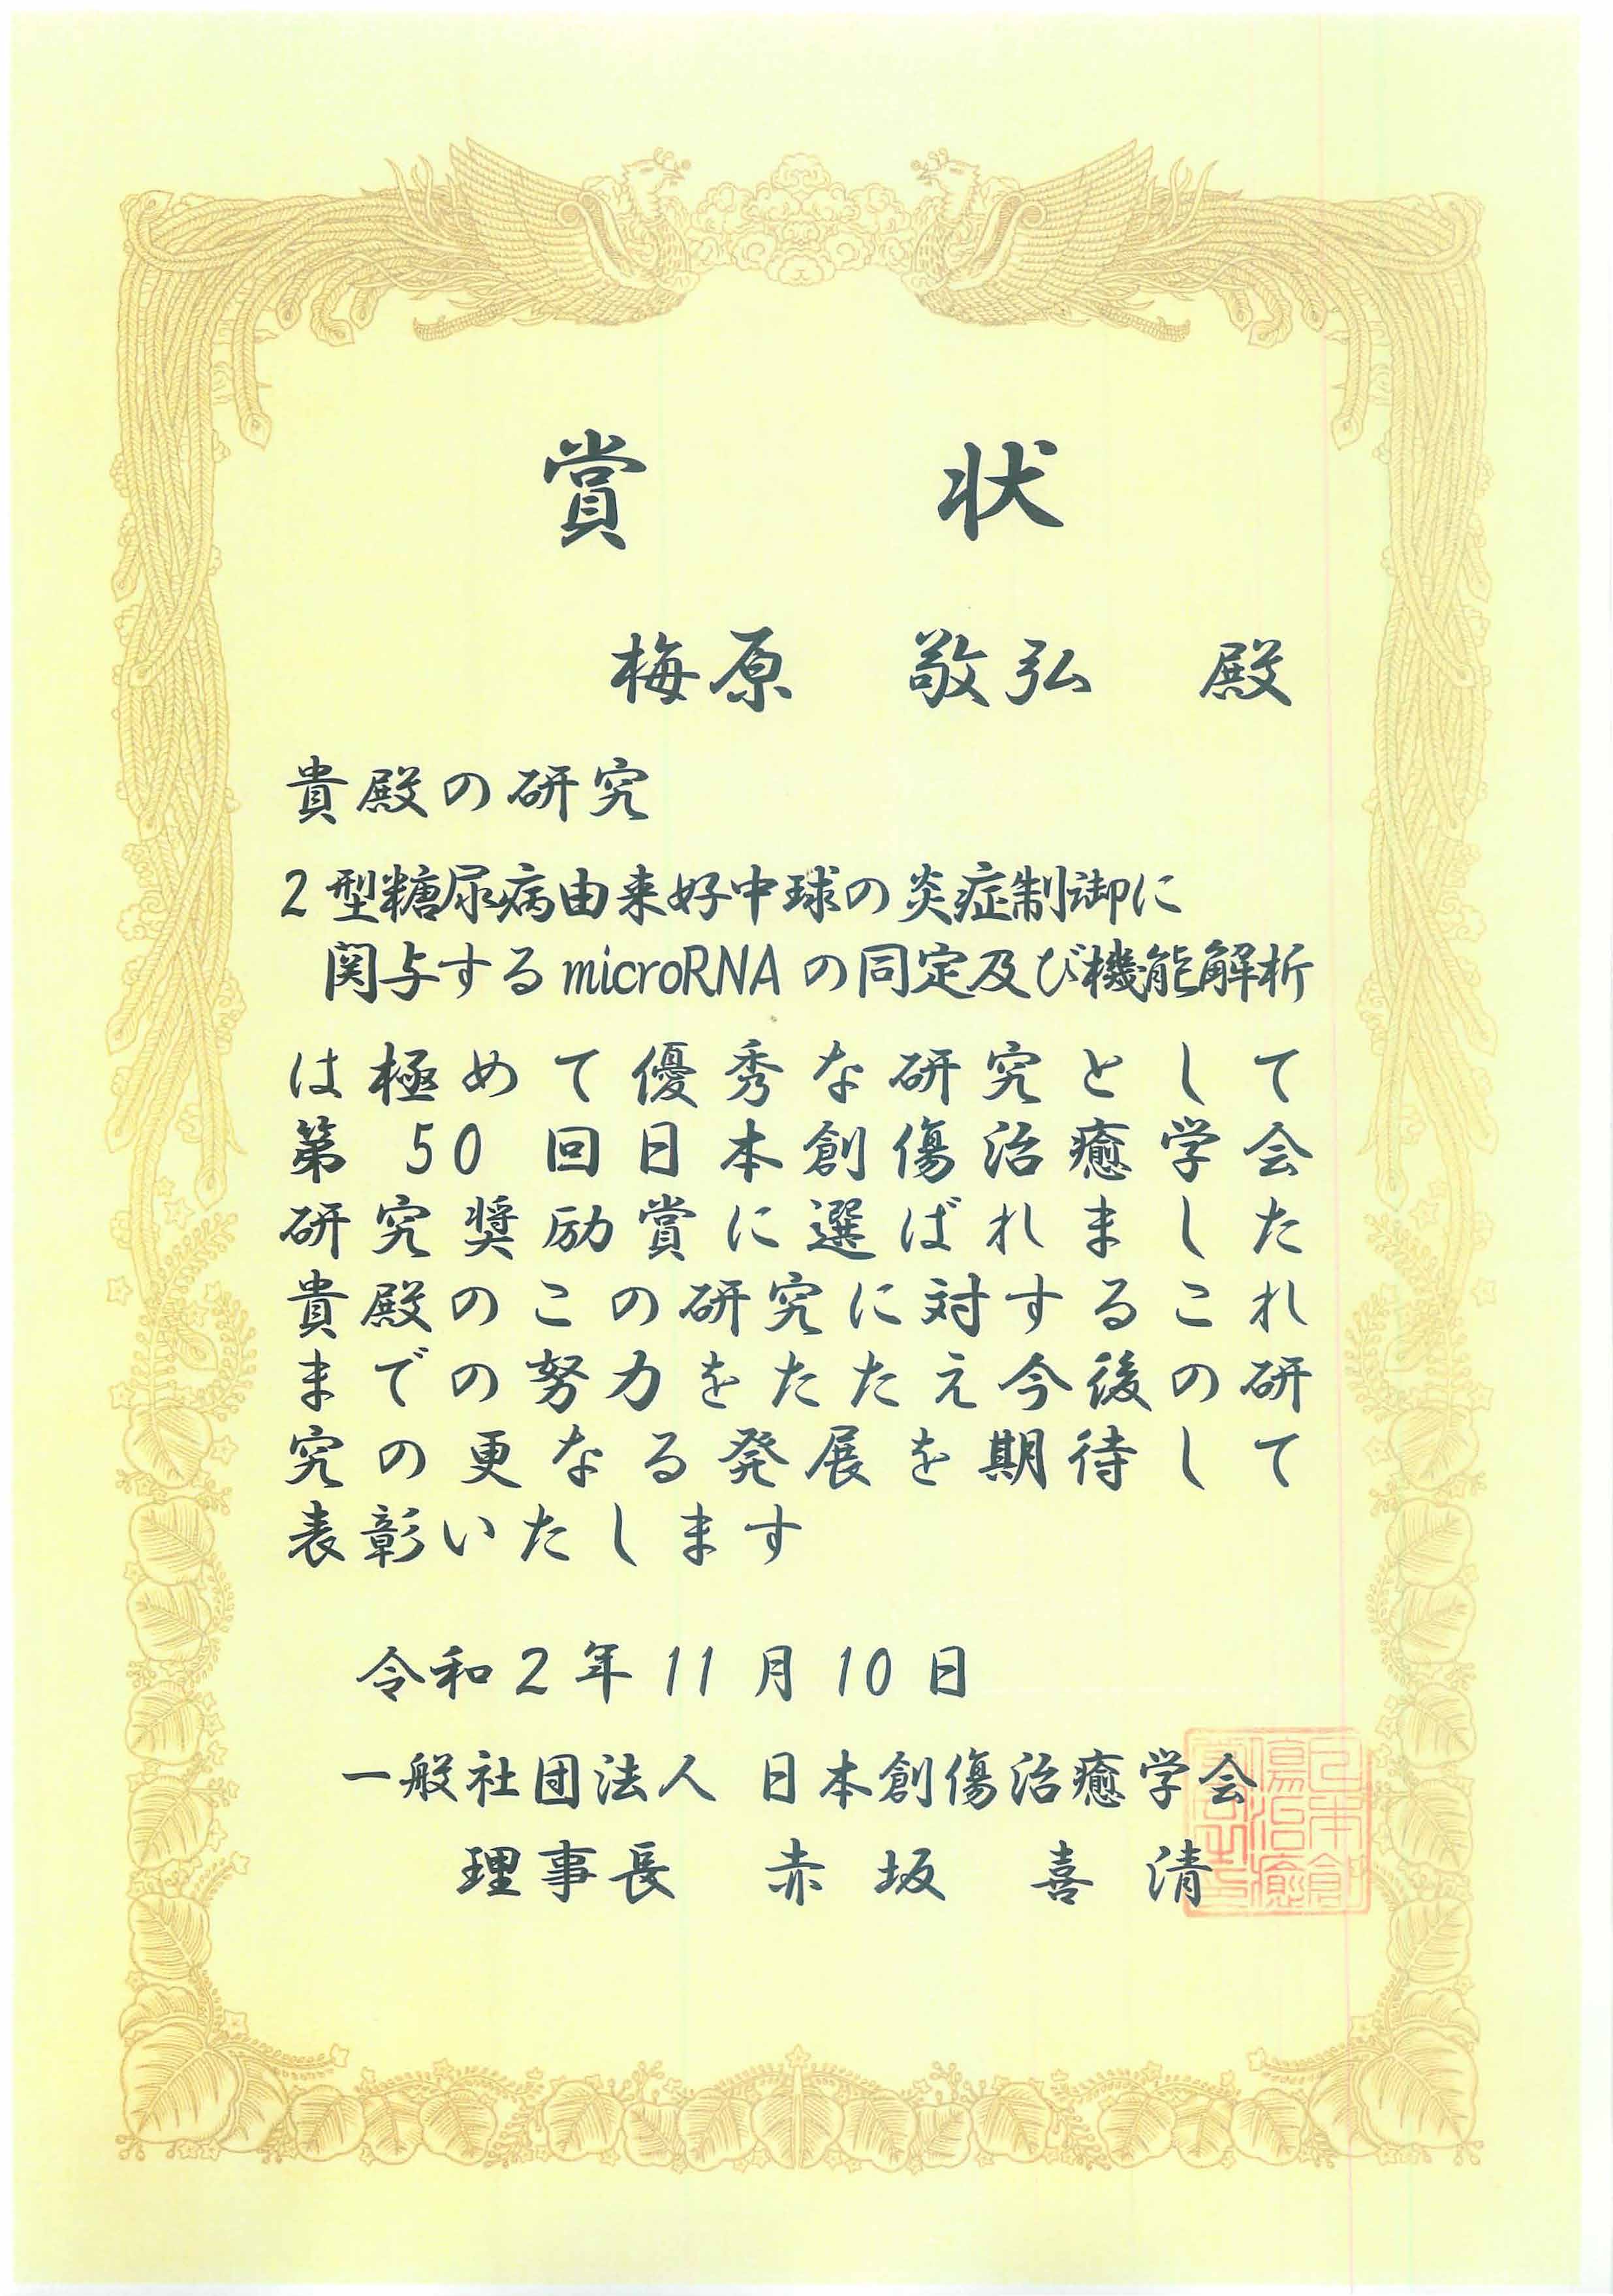 賞状
梅原 敬弘 殿
貴殿の研究
2型糖尿病由来好中球の炎症制御に
関与するmicroRNAの同定及び機能解析
は極めて優秀な研究として
第50回日本創傷治癒学会
研究奨励賞に選ばれました
貴殿のこの研究に対するこれ
までの努力をたたえ今後の研
究の更なる発展を期待して
表彰いたします
令和2年11月10日
一般社団法人 日本創傷治癒学会
理事長 赤坂 喜清